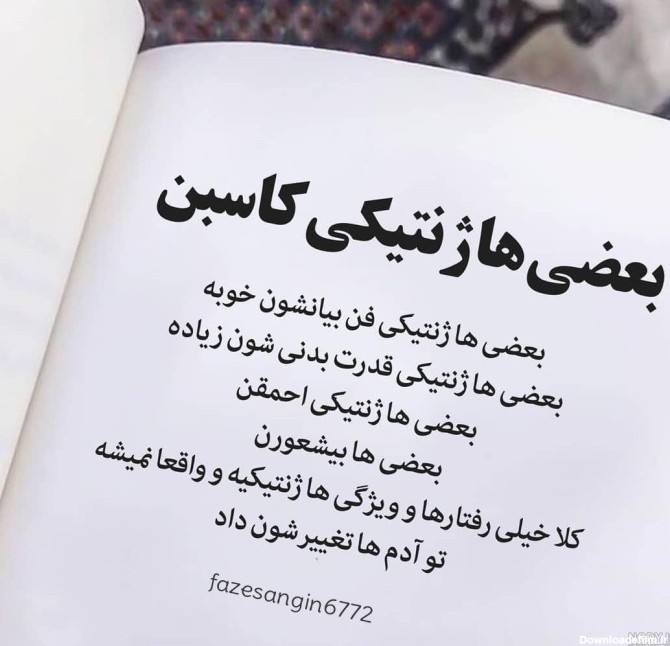 بعضی ها ژنتیکی کاسبن
بعضی ها ژنتیکی فن بیانشون خوبه
بعضی ها ژنتیکی قدرت بدنی شون زیاده
بعضی ها ژنتیکی احمقن
بعضی ها بیشعورن
کلا خیلی رفتارها و ویژگی ها ژنتیکیه و واقعا نمیشه
تو آدم ها تغییرشون داد
fazesangin6772
Downloadefilm.ir